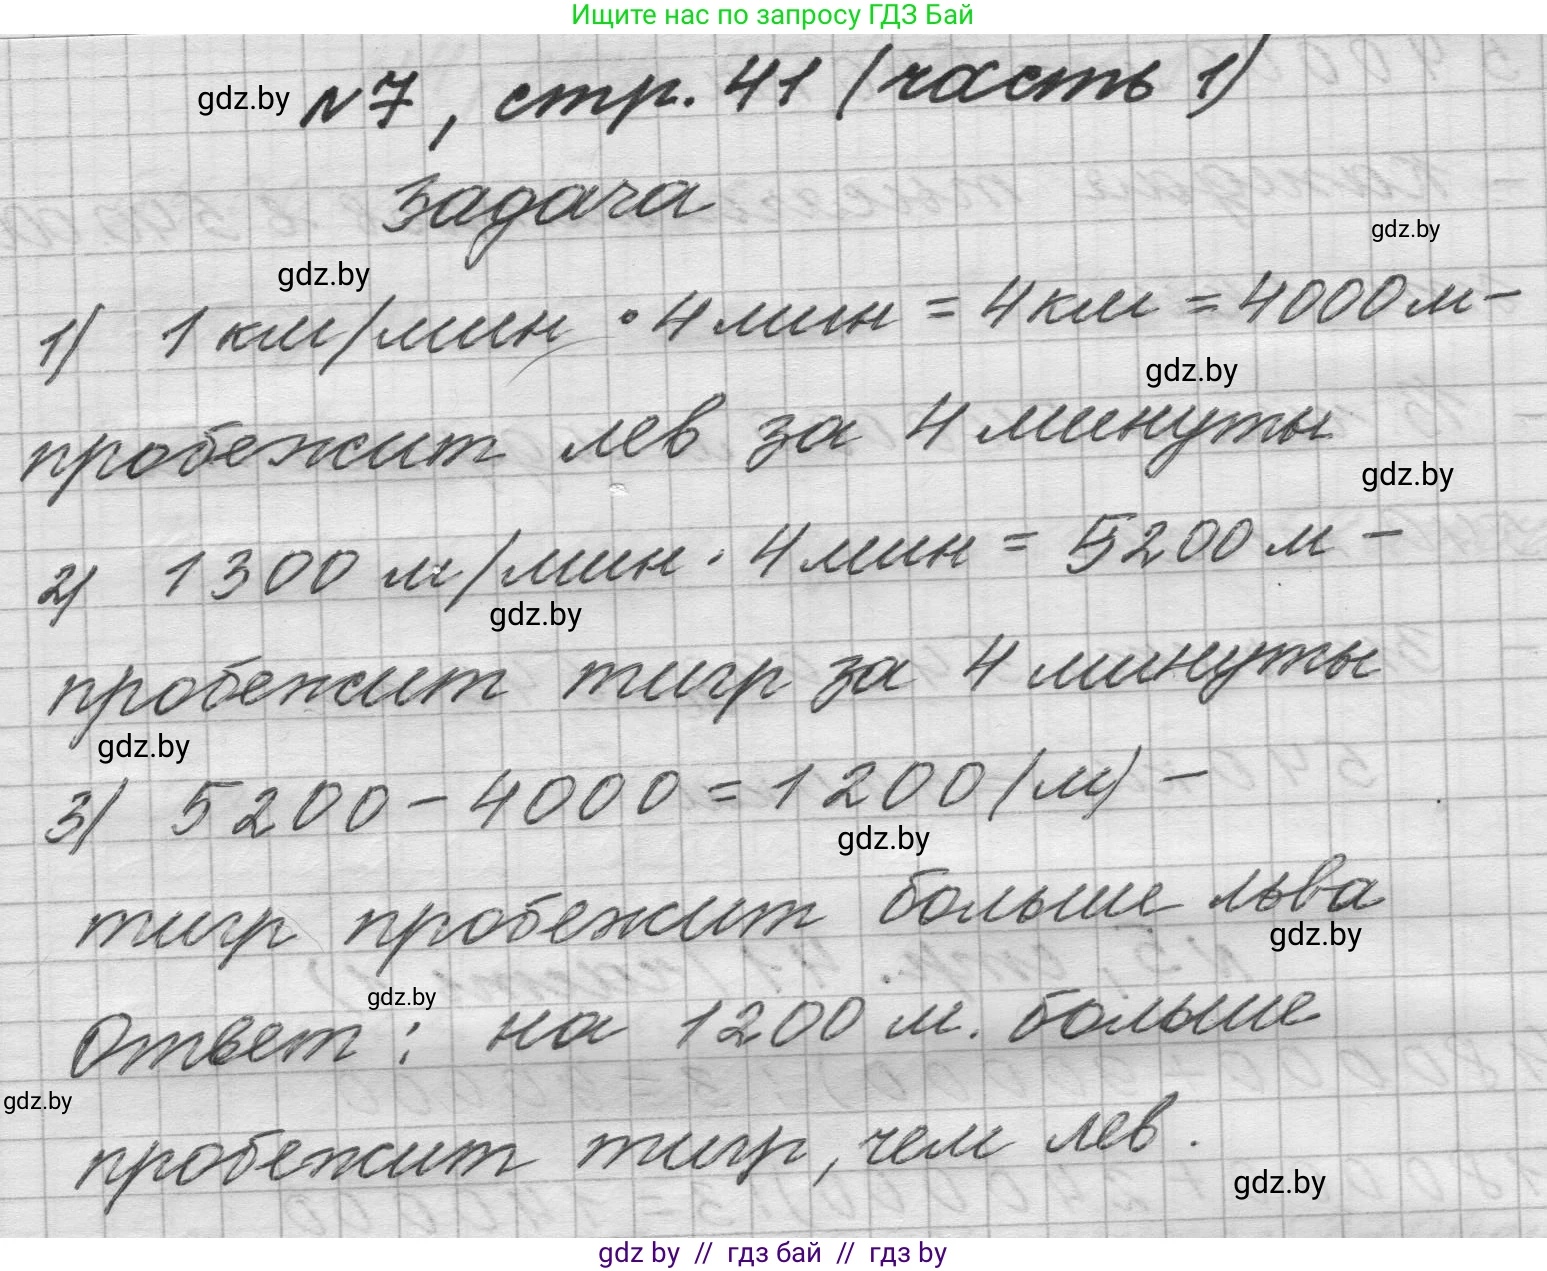 Ищите нас по запросу ГДЗ Бай
gdz.by №7, стр. 41 (часть 1)
Задача
gdz.by
gdz.by
1) 1 км/мин · 4 мин = 4 км = 4000 м –
gdz.by
пробежит лев за 4 минуты
gdz.by
2) 1300 м/мин · 4 мин = 5200 м –
gdz.by
пробежит тигр за 4 минуты
gdz.by
3) 5200 – 4000 = 1200 (м) –
gdz.by
тигр пробежит больше льва
gdz.by
gdz.by
Ответ: на 1200 м. больше
gdz.by
пробежит тигр, чем лев.
gdz.by
gdz by // гдз бай // гдз by